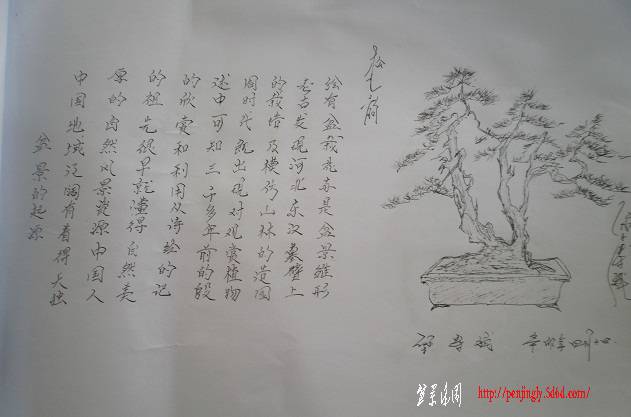 盆景的起源
中国地域辽阔有着得天独
厚的自然风景资源中国人
的祖先很早就懂得自然美
的欣赏和利用从诗经的记
述中可知三千多年前的殷
周时代就出现对观赏植物
的栽培及模仿山林的造园
考古发现河北东汉墓壁上
绘有盆栽花卉是盆景雏形
辛卯年四月十四
盆景乐园
http://penjingly.5d6d.com/